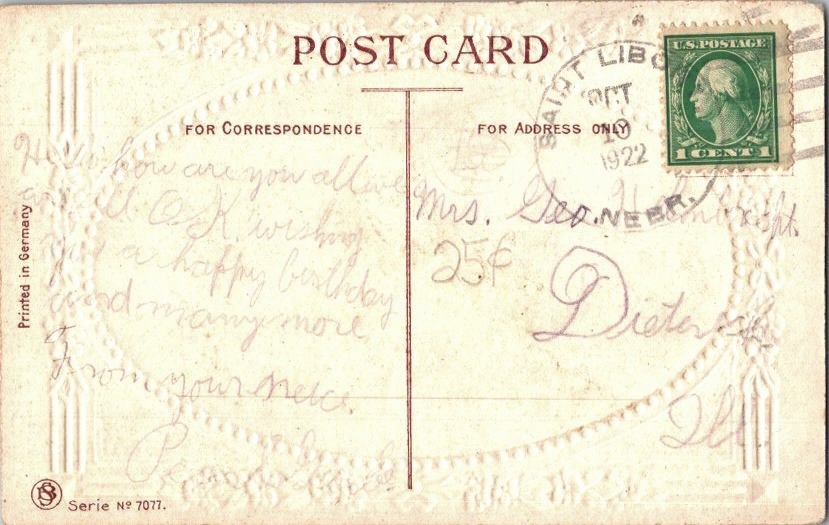 POST CARD
FOR CORRESPONDENCE
FOR ADDRESS ONLY
SAINT LIBO
OCT
10
1922
NEBR.
U.S. POSTAGE
1 CENT 1
Hello how are you all we
all O.K. wishing
you a happy birthday
and many more
From your neice.
Mrs. Geo.
25¢
Dieterich
Ill.
Printed in Germany
Serie No 7077.